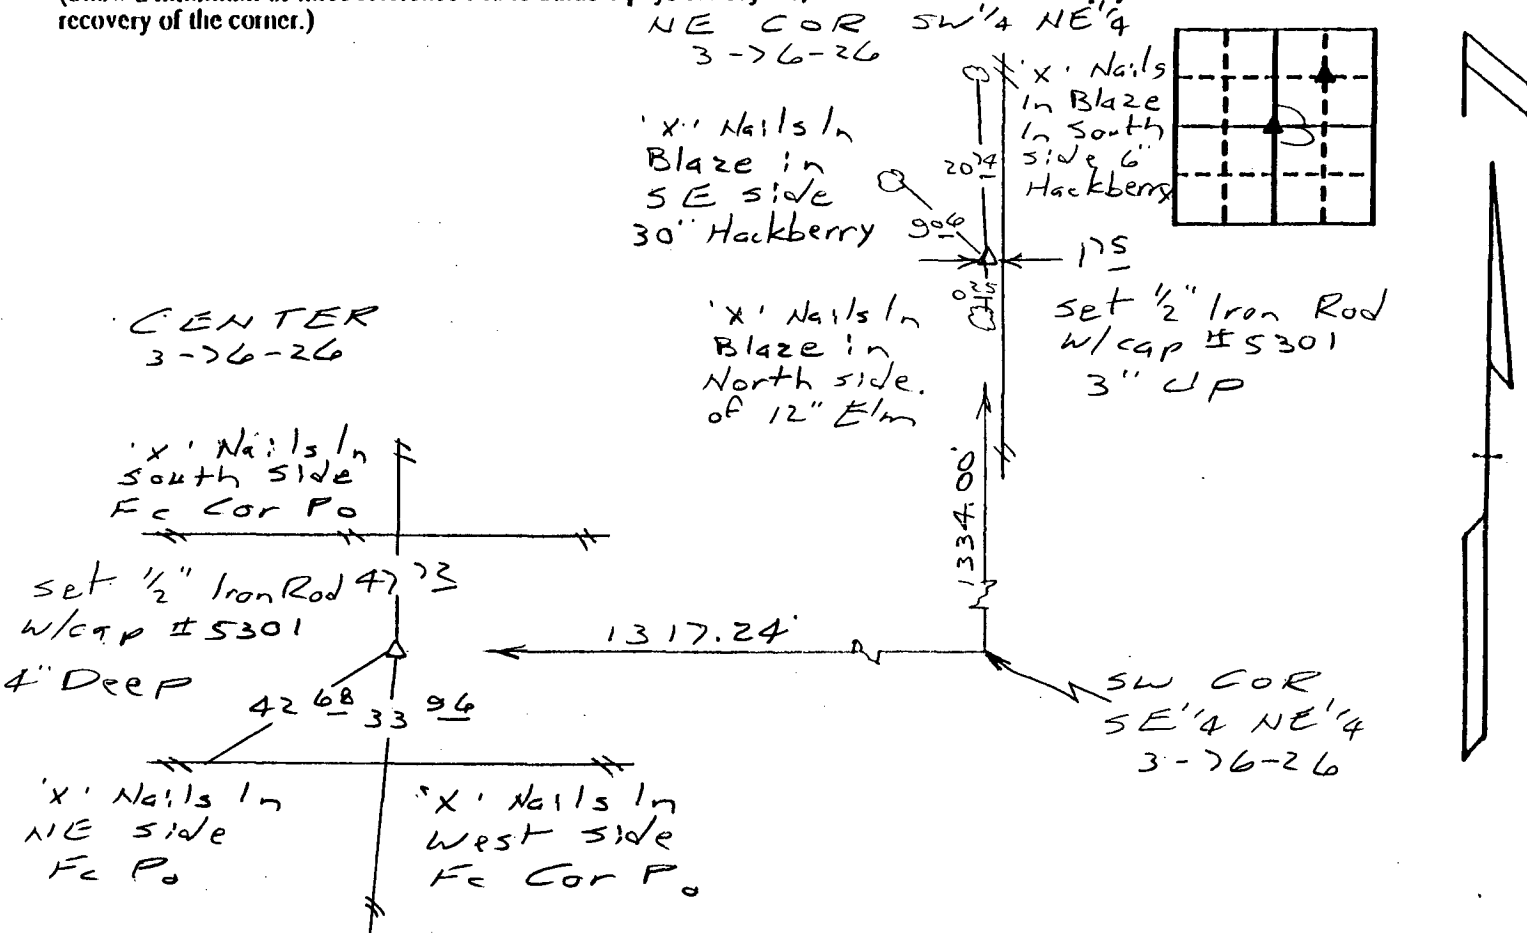 recovery of the corner.)
NE COR SW 1/4 NE 1/4
3-76-26
'X' Nails
In Blaze
In South
side 6"
Hackberry
'X' Nails In
Blaze in
SE side
30" Hackberry
20 74
9 06
1 75
set 1/2" Iron Rod
w/cap #5301
3" Up
'X' Nails In
Blaze in
North side.
of 12" Elm
1334.00'
CENTER
3-76-26
'X' Nails In
South Side
Fc Cor Po
set 1/2" Iron Rod
w/cap #5301
4" Deep
47 73
1317.24'
42 68
33 96
SW COR
SE 1/4 NE 1/4
3-76-26
'X' Nails In
NE side
Fc Po
'X' Nails In
West side
Fc Cor Po